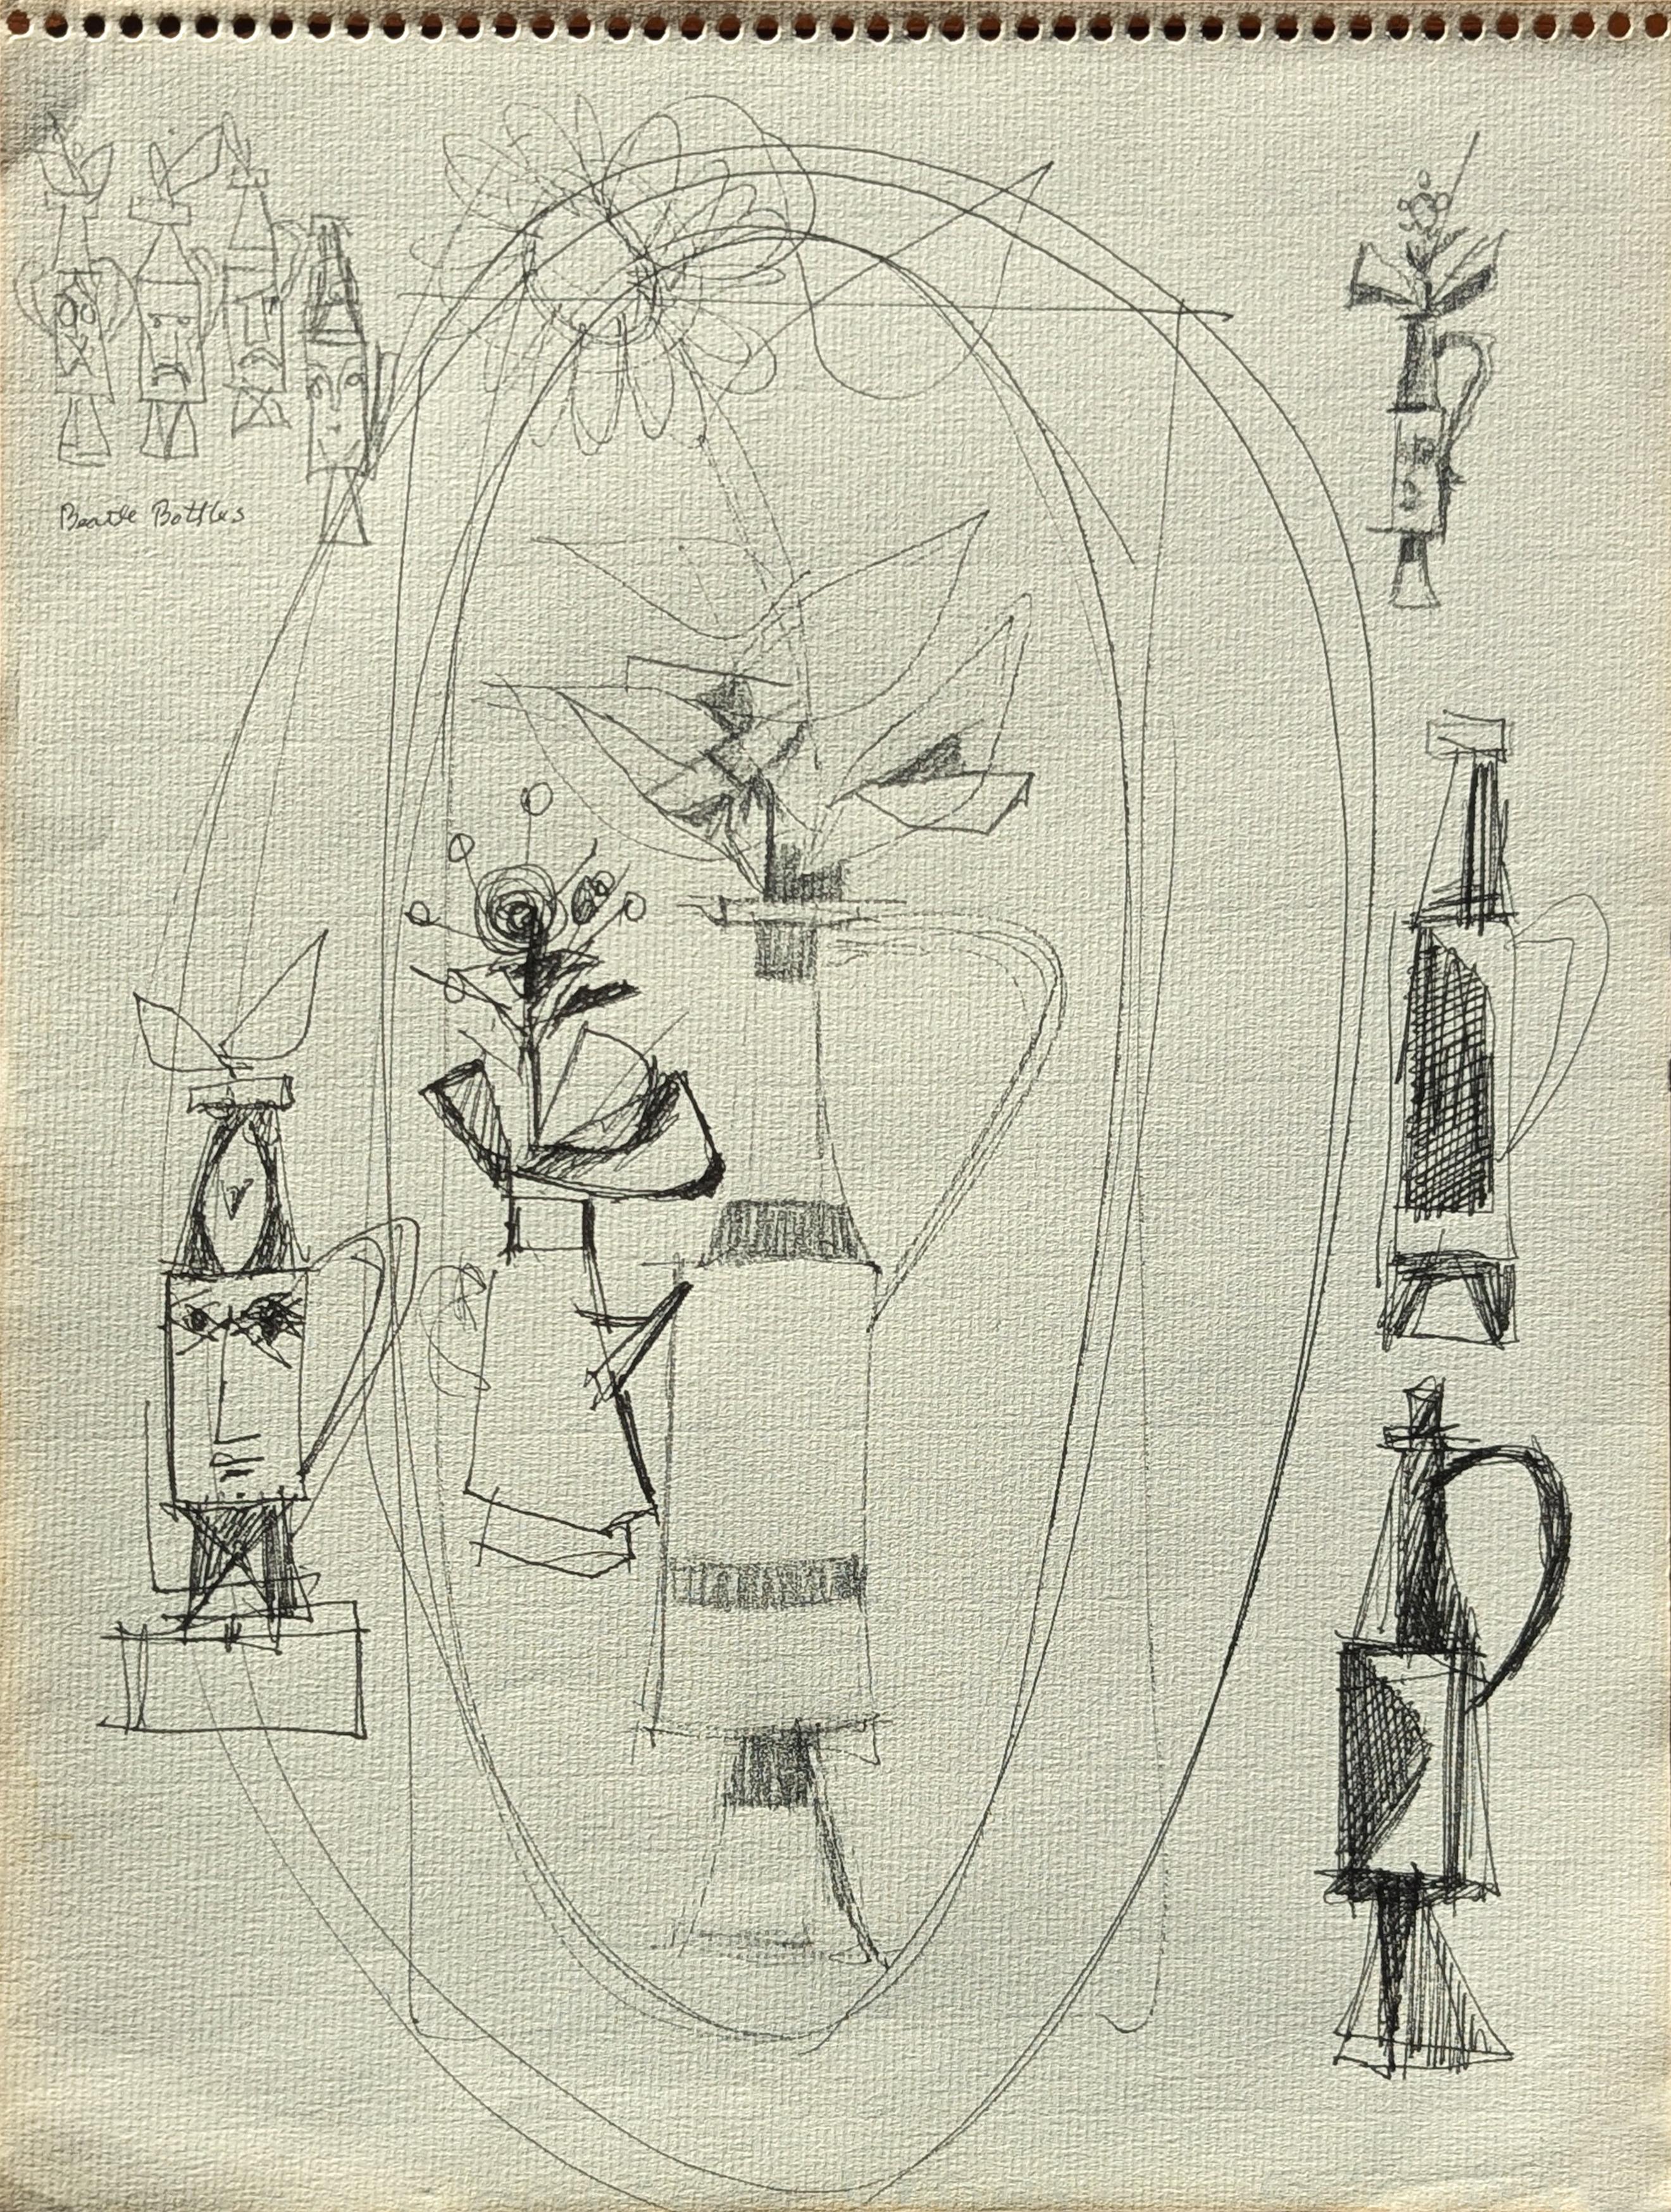 Beatle Bottles